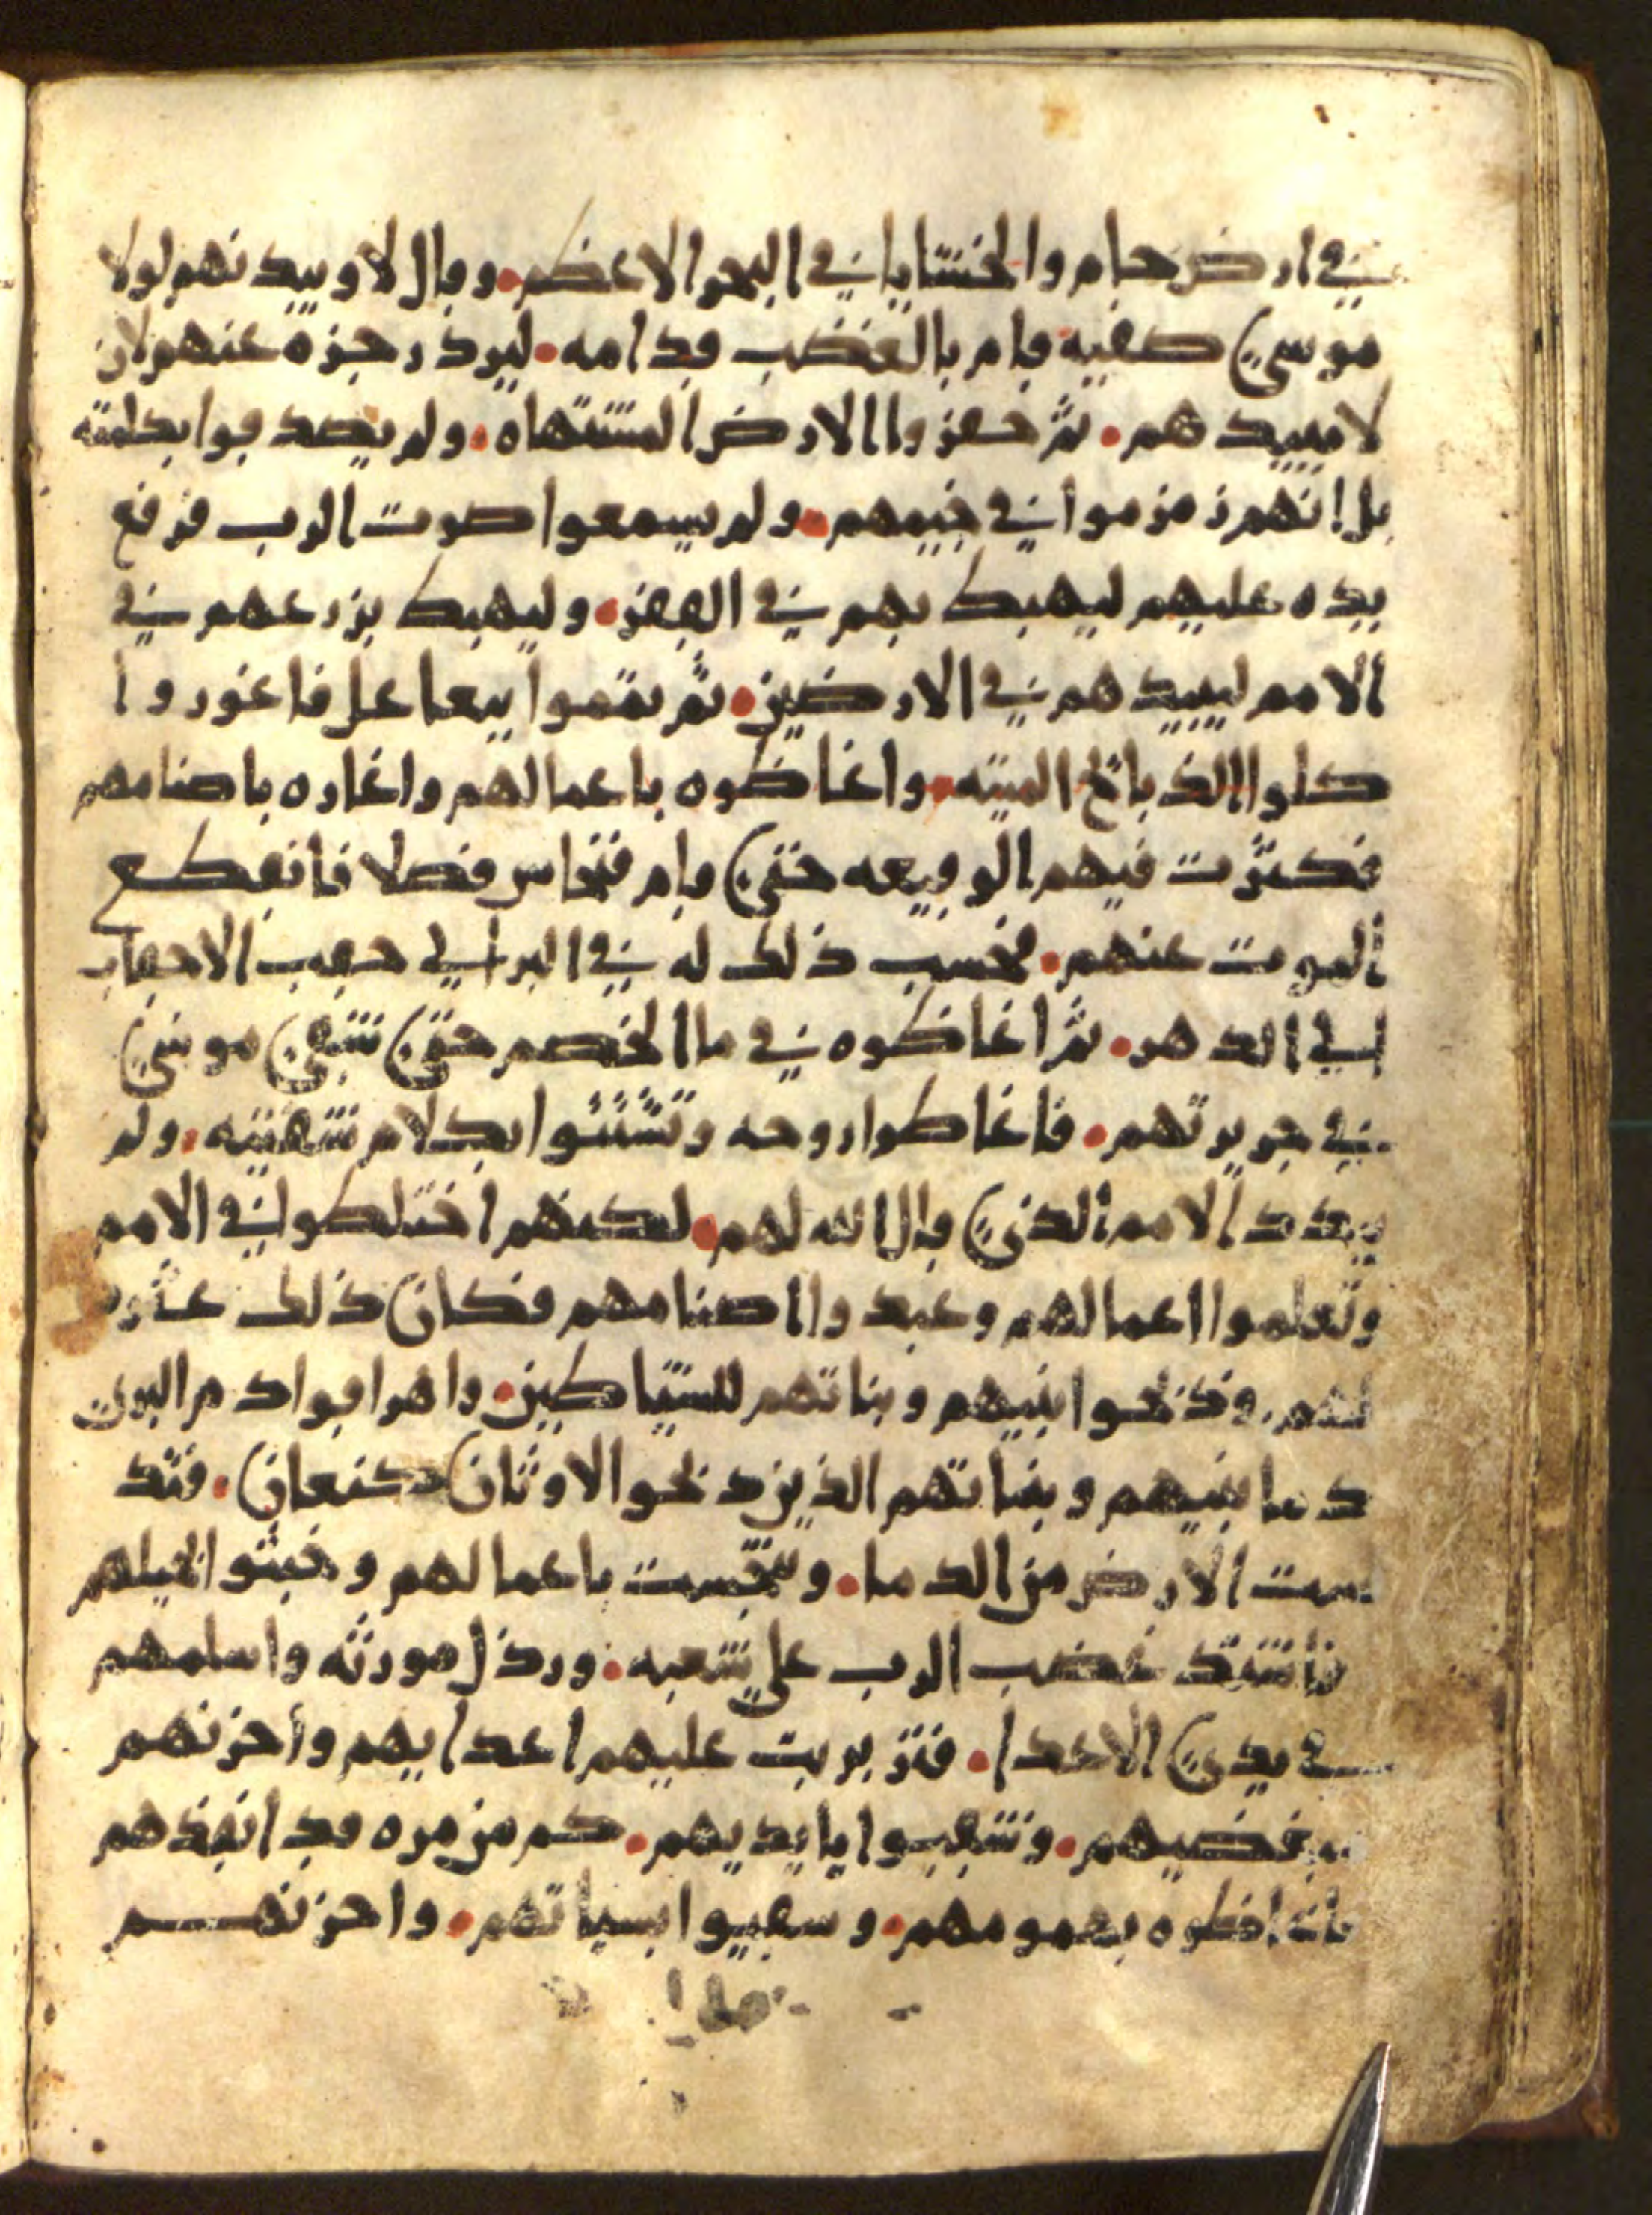 في ارض حام والخشايا في البحر الاعظم. وقال لاوبيدنهم لولا
موسى صفيه قام بالغضب قدامه. ليرد رجزه عنهم لان
لا يبيدهم. ثم حقروا الارض المشتهاه. ولم يصدقوا بكلمته
بل انهم زمزموا في خيمهم. ولم يسمعوا صوت الرب فرفع
يده عليهم ليهبط بهم في القفر. وليهبط بزرعهم في
الامم ليبيدهم في الارضين. ثم تقموا ببعا عل فاغورو ا
كلوا الذبائح الميته. واغاظوه باعمالهم واغاره باصنامهم
فكثرت فيهم الوقيعه حتى قام فنحاس فصلا فانقطع
الموت عنهم. فحسب ذلك له في البر الى حقب الاحقاب
الى الدهر. ثم اغاظوه في ما الخصم حتى شقى موسى
في جريرتهم. فاغاظوا روحه وتشتتوا بكلام شفتيه. ولم
يبددالامم الذى قال الله لهم. لكنهم اختلطوا في الامم
وتعلموا اعمالهم وعبدوا اصنامهم فكان ذلك عثره
لهم. وذبحوا بنيهم وبناتهم للشياطين. واهراقوا دم البرى
دما بنيهم وبناتهم الذين ذبحو الاوثان كنعان. فتد
نست الارض من الدما. وتنجست باعمالهم وخبثوا بحيلهم
فاشتد غضب الرب على شعبه. ورذل مورثه واسلمهم
في يدى الاعدا. فتزبربت عليهم اعدايهم واحزنهم
مبغضيهم. وشقيوا بايديهم. كم من مره قد انقذهم
فاغاظوه بهمومهم. وسقيوا بسياتهم. واحزنهم